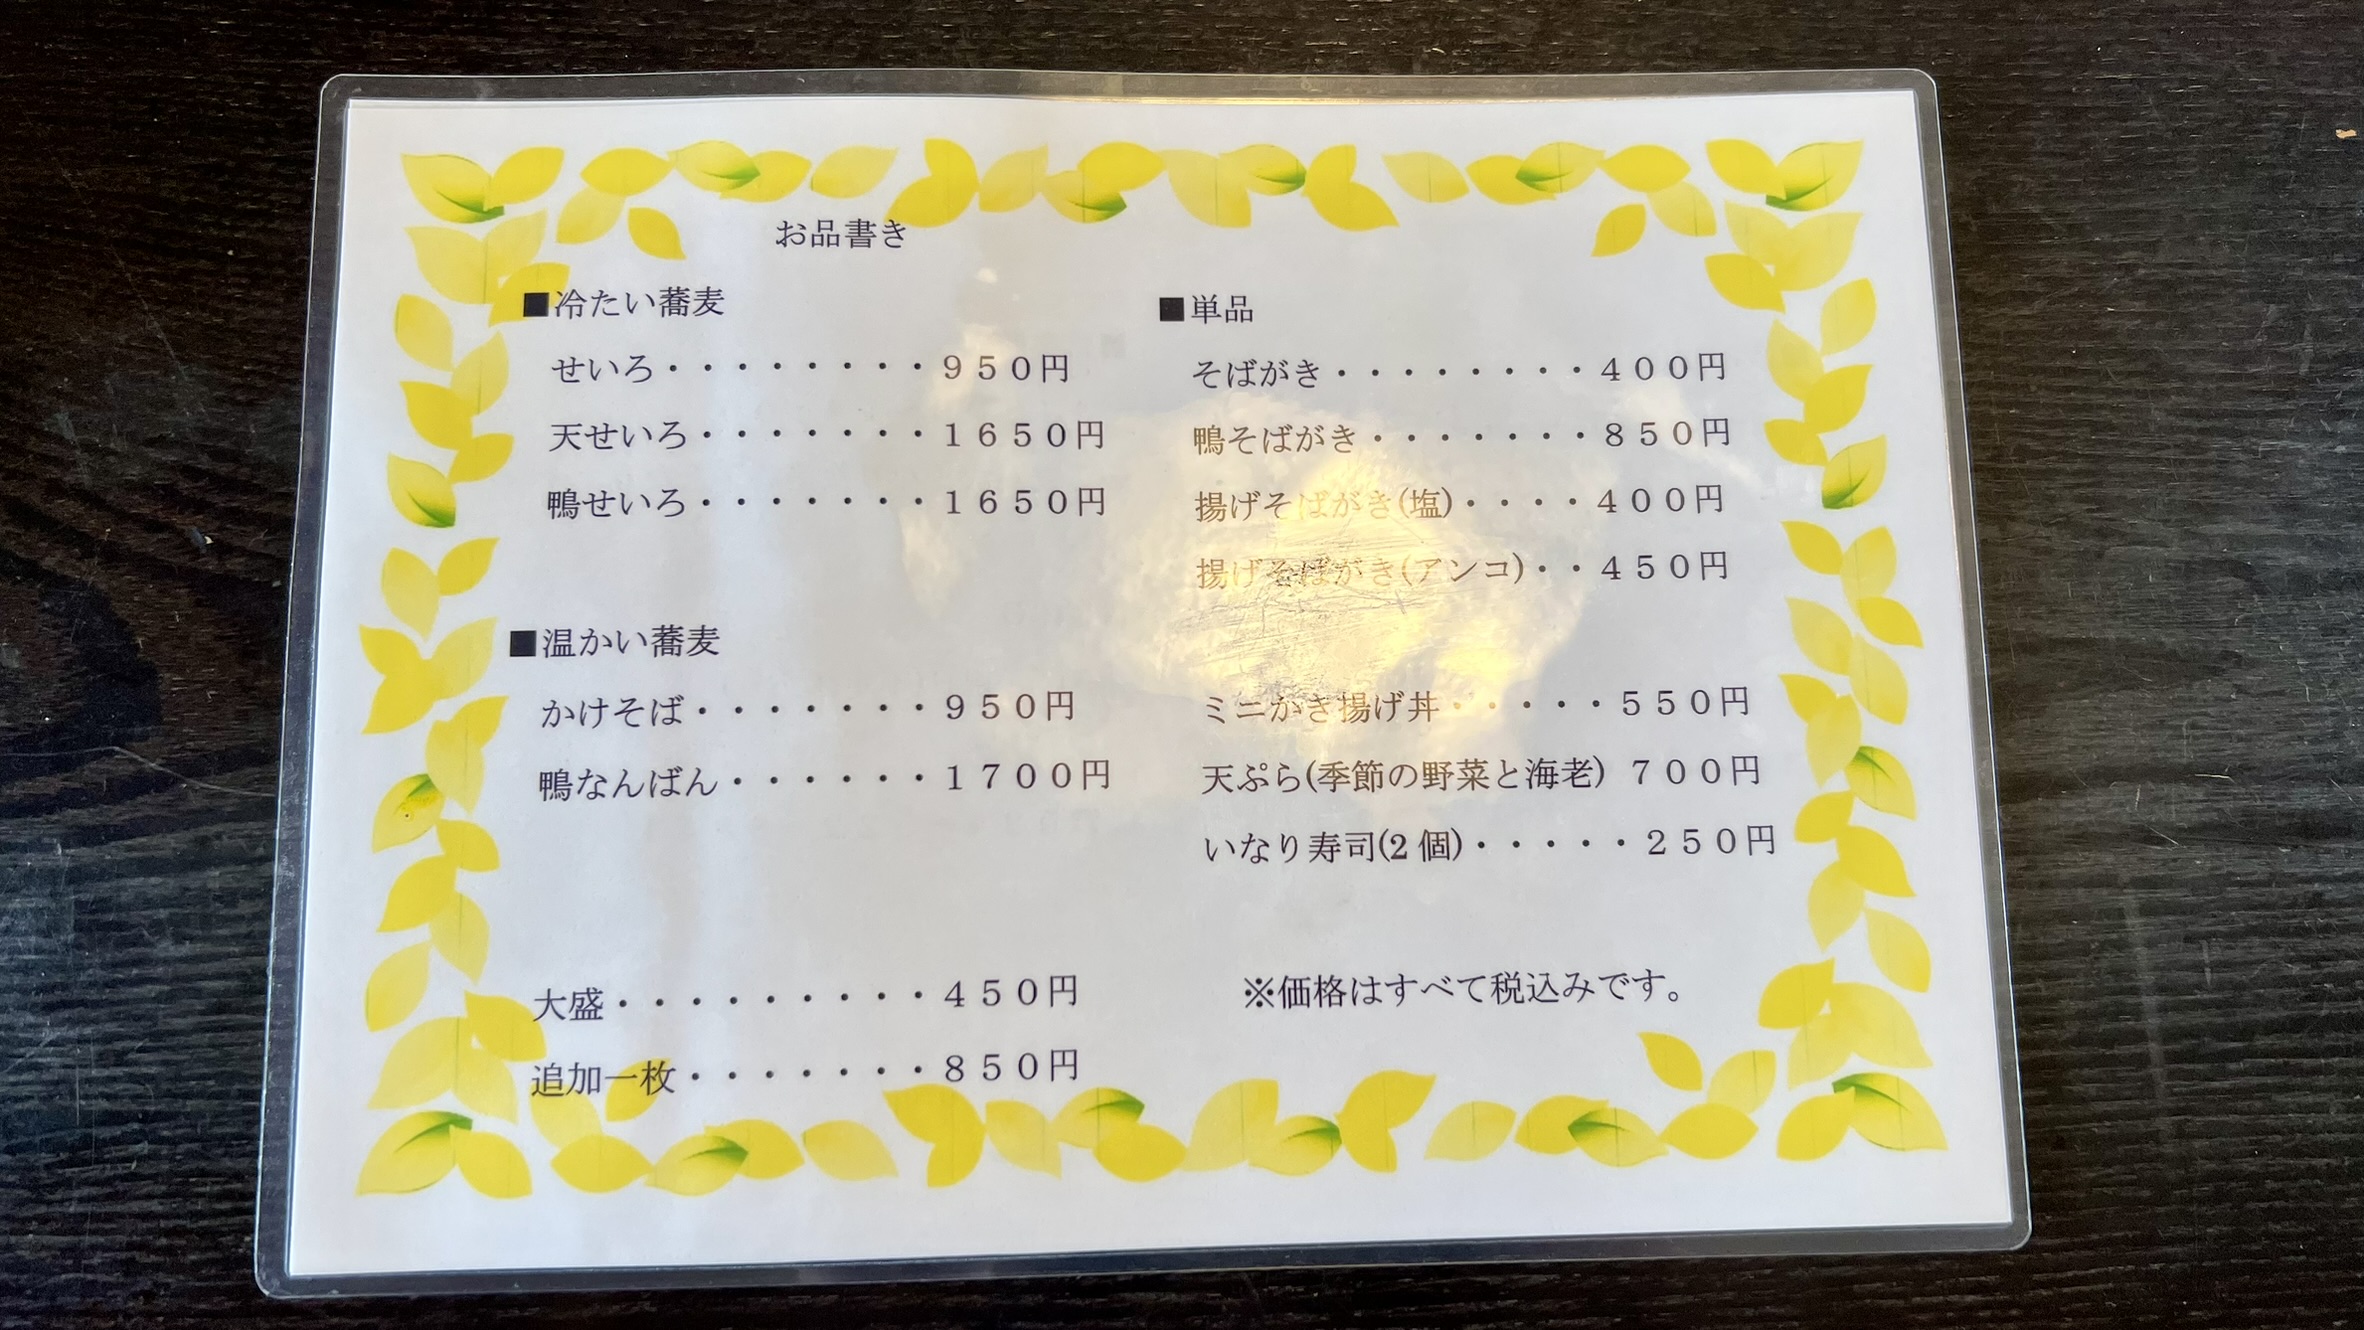 お品書き
■冷たい蕎麦
せいろ・・・・・・・・950円
天せいろ・・・・・・・1650円
鴨せいろ・・・・・・・1650円
■温かい蕎麦
かけそば・・・・・・・950円
鴨なんばん・・・・・・1700円
大盛・・・・・・・・・450円
追加一枚・・・・・・・850円
■単品
そばがき・・・・・・・・400円
鴨そばがき・・・・・・・850円
揚げそばがき(塩)・・・・400円
揚げそばがき(アンコ)・・450円
ミニかき揚げ丼・・・・・550円
天ぷら(季節の野菜と海老) 700円
いなり寿司(2個)・・・・・250円
※価格はすべて税込みです。